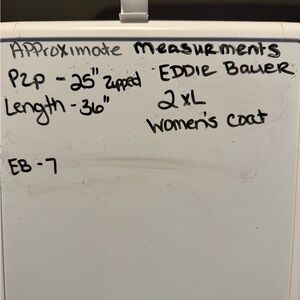 Approximate Measurments
P2P - 25" Zipped
Length - 36"
EDDIE BAUER
2XL
Women's Coat
EB-7